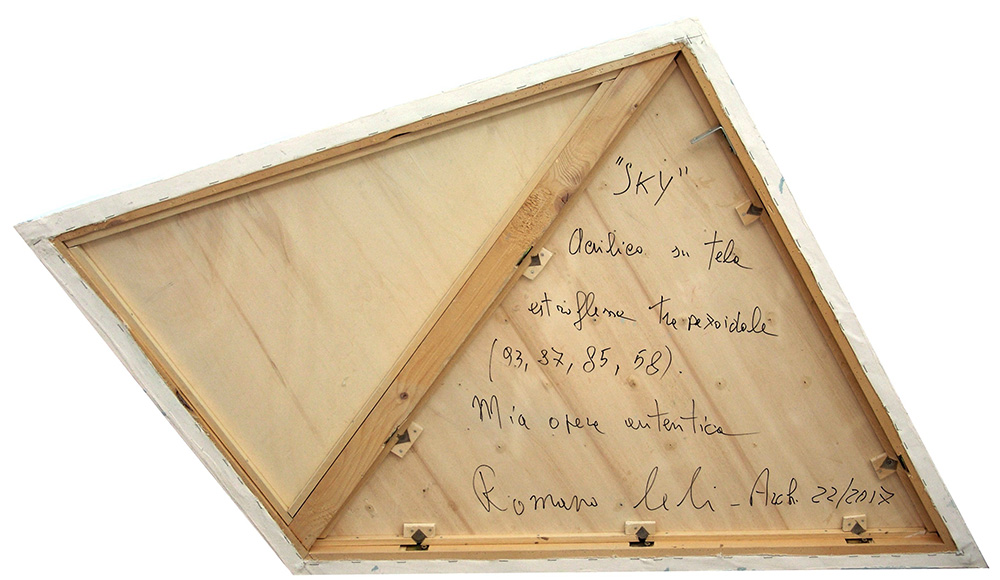 "Sky"
Acrilico su tela
estroflessa trapezoidale
(93, 87, 85, 58).
Mia opera autentica
Romano Leli - Arch. 22/2017